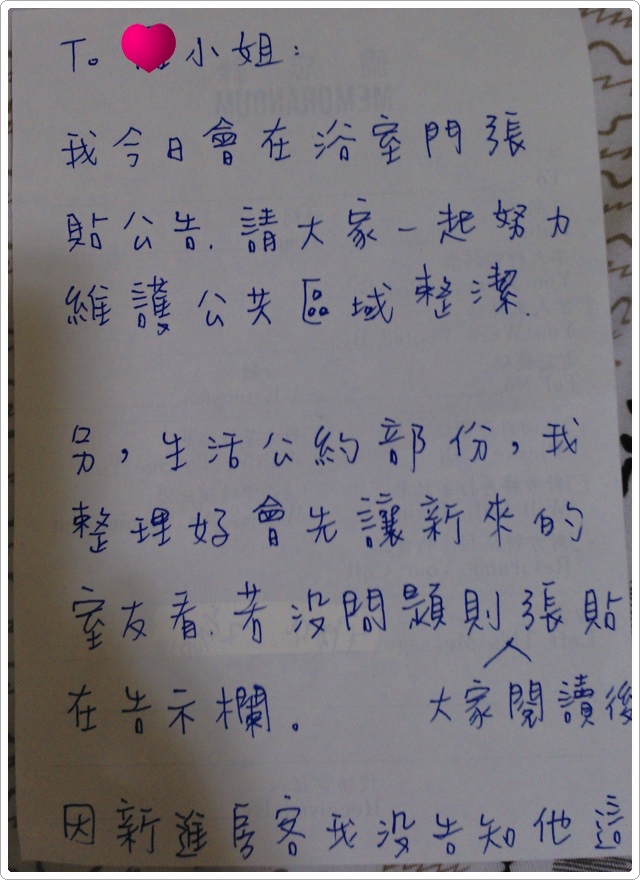 To 小姐:
我今日會在浴室門張
貼公告.請大家一起努力
維護公共區域整潔.
另,生活公約部份,我
整理好會先讓新來的
室友看.若沒問題則張貼
在告示欄。 大家閱讀後
因新進房客我沒告知他這